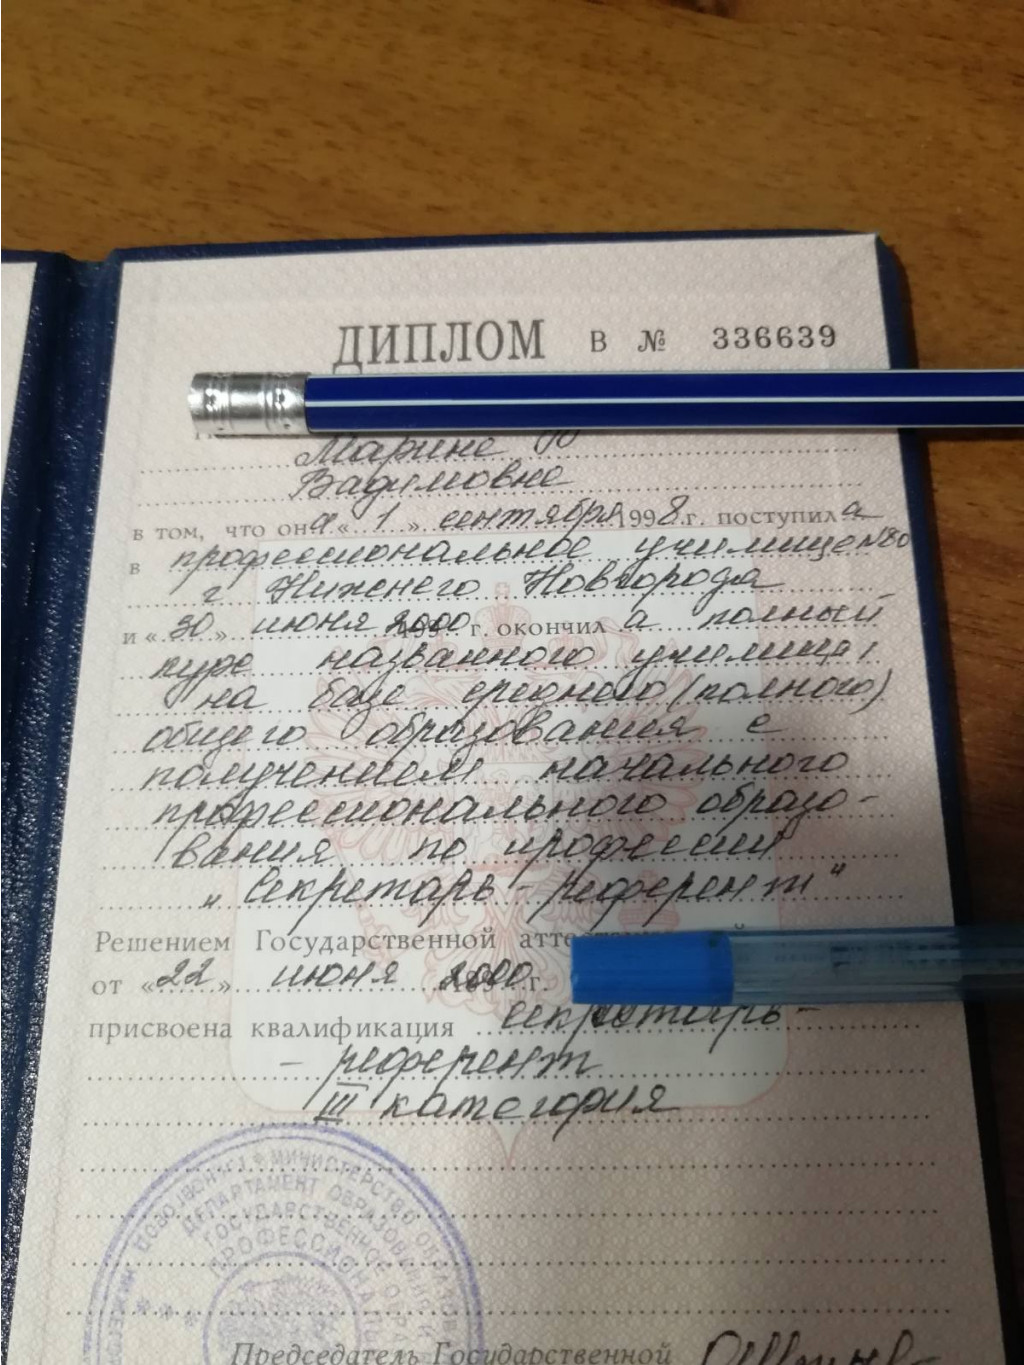 ДИПЛОМ В № 336639
Марине Ю
Вадимовне
в том, что она « 1 » сентября 1998 г. поступила
в профессиональное училище №80
г Нижнего Новгорода
и « 30 » июня 2000 г. окончил а полный
курс названного училища
на базе среднего (полного)
общего образования с
получением начального
профессионального образо-
вания по профессии
„Секретарь-референт"
Решением Государственной
от «22» июня 2000 г.
присвоена квалификация секретарь-
- референт
III категория
МИНИСТЕРСТВО
ДЕПАРТАМЕНТ ОБРАЗОВАНИЯ
ГОСУДАРСТВЕННОЕ
Председатель Государственной